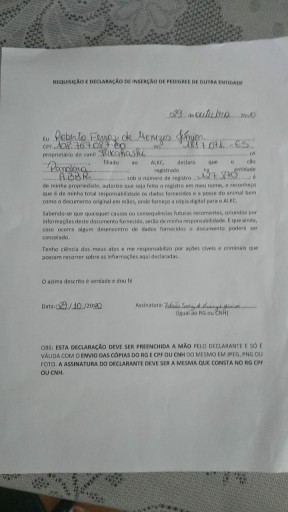 REQUISIÇÃO E DECLARAÇÃO DE INSERÇÃO DE PEDIGREE DE OUTRA ENTIDADE
29 outubro
Eu Roberto Ferraz de Menezes Júnior
CPF RG
proprietário do canil
filiado ao ALKC, declara que o cão
Pandora registrado entidade
sob o número de registro é
de minha propriedade, autorizo que seja feito o registro em meu nome, e reconheço
que é de minha total responsabilidade os dados fornecidos e a posse do animal bem
como o documento original em mãos, onde forneço a cópia digital para o ALKC.
Sabendo-se que quaisquer causas ou consequências futuras recorrentes, oriundas por
informações deste documento fornecido, serão de minha responsabilidade. E que ainda,
caso ocorra algum desencontro de dados fornecidos o documento poderá ser
cancelado.
Tenho ciência dos meus atos e me responsabilizo por ações cíveis e criminais que
possam recorrer sobre as informações aqui declaradas.
O acima descrito é verdade e dou fé
Data: 29/10/2020 Assinatura:
(Igual ao RG ou CNH)
OBS: ESTA DECLARAÇÃO DEVE SER PREENCHIDA A MÃO PELO DECLARANTE E SÓ É
VÁLIDA COM O ENVIO DAS CÓPIAS DO RG E CPF OU CNH DO MESMO EM JPEG, PNG OU
FOTO. A ASSINATURA DO DECLARANTE DEVE SER A MESMA QUE CONSTA NO RG CPF
OU CNH.